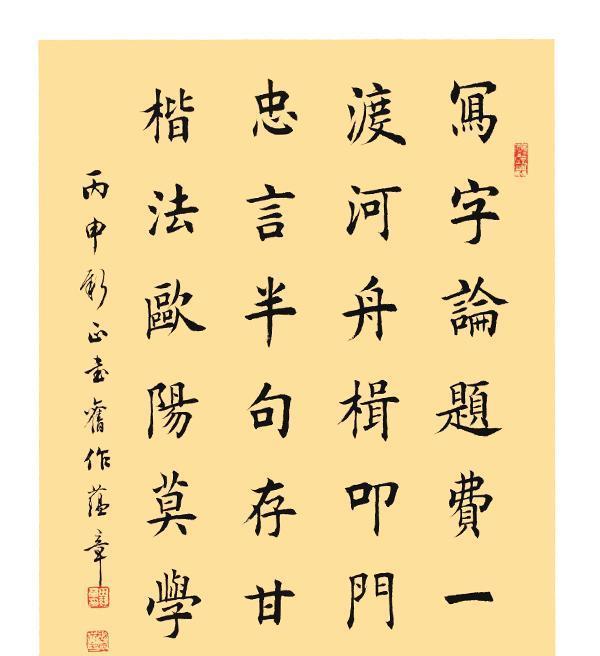 寫字論題費一
渡河舟楫叩門
忠言半句存甘
楷法歐陽莫學
丙申新正書舊作蘊章